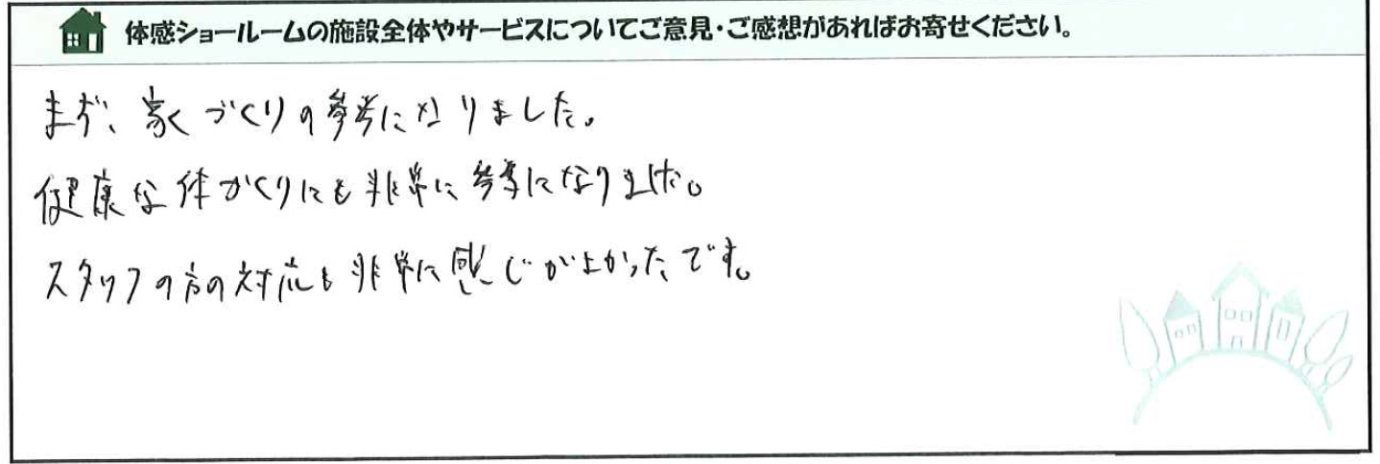 体感ショールームの施設全体やサービスについてご意見・ご感想があればお寄せください。
まず、家づくりの参考になりました。
健康な体づくりにも非常に参考になりました。
スタッフの方の対応も非常に感じがよかったです。